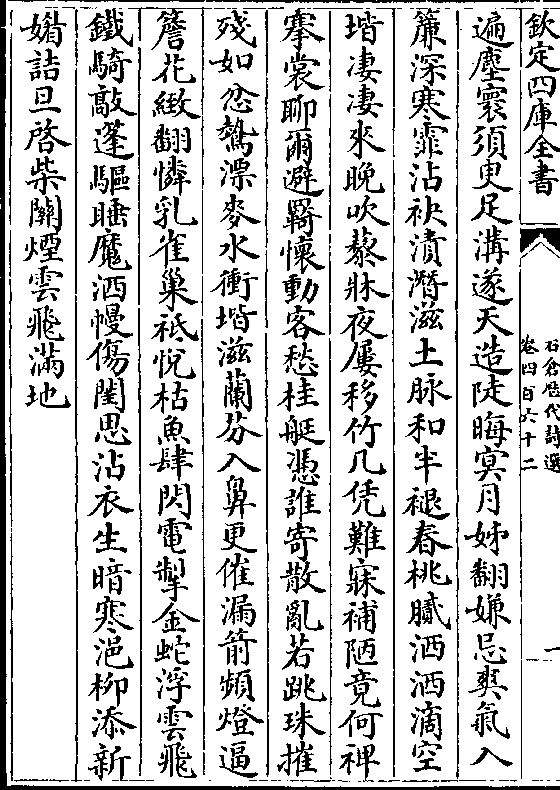 欽定四庫全書
石倉歷代詩選
卷四百六十二
一
遍塵寰須臾足溝遂天造陡晦㝠月姊翻嫌忌爽氣入
簾深寒霏沾袂漬潛滋土脉和半褪春桃膩洒洒滴空
堦淒淒來晩吹藜牀夜屢移竹几凭難寐補陋竟何裨
搴裳聊爾避羇懷動客愁桂艇憑誰寄散亂若跳珠摧
殘如忿鷙漂麥水衝堦滋蘭芬入鼻更催漏箭頻燈逼
簷花緻翻憐乳雀巢祗恱枯魚肆閃電掣金蛇浮雲飛
鐵騎敲蓬驅睡魔洒幔傷閨思沾衣生暗寒浥柳添新
媚詰旦啓柴闗煙雲飛滿地